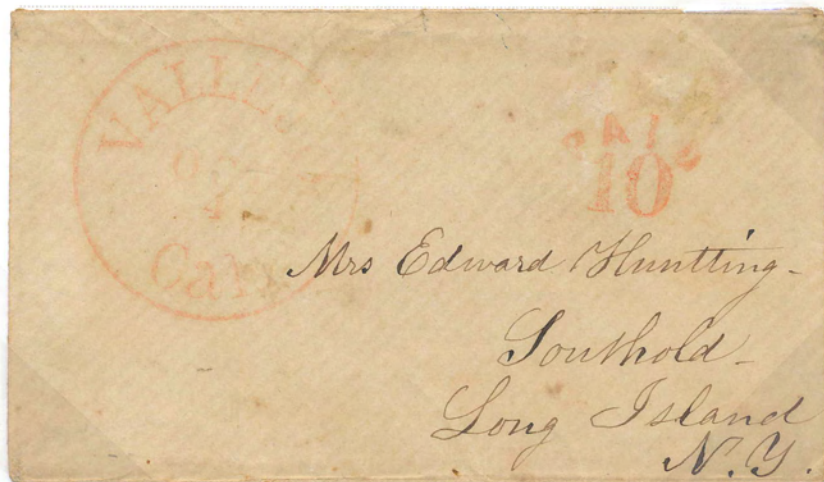 OCT
1
Cal
PAID
10
Mrs Edward Huntting-
Southold-
Long Island
N. Y.